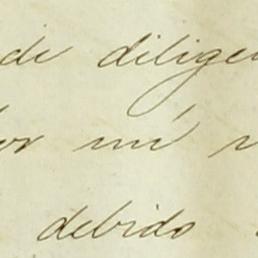 de dilige
or mi
debido